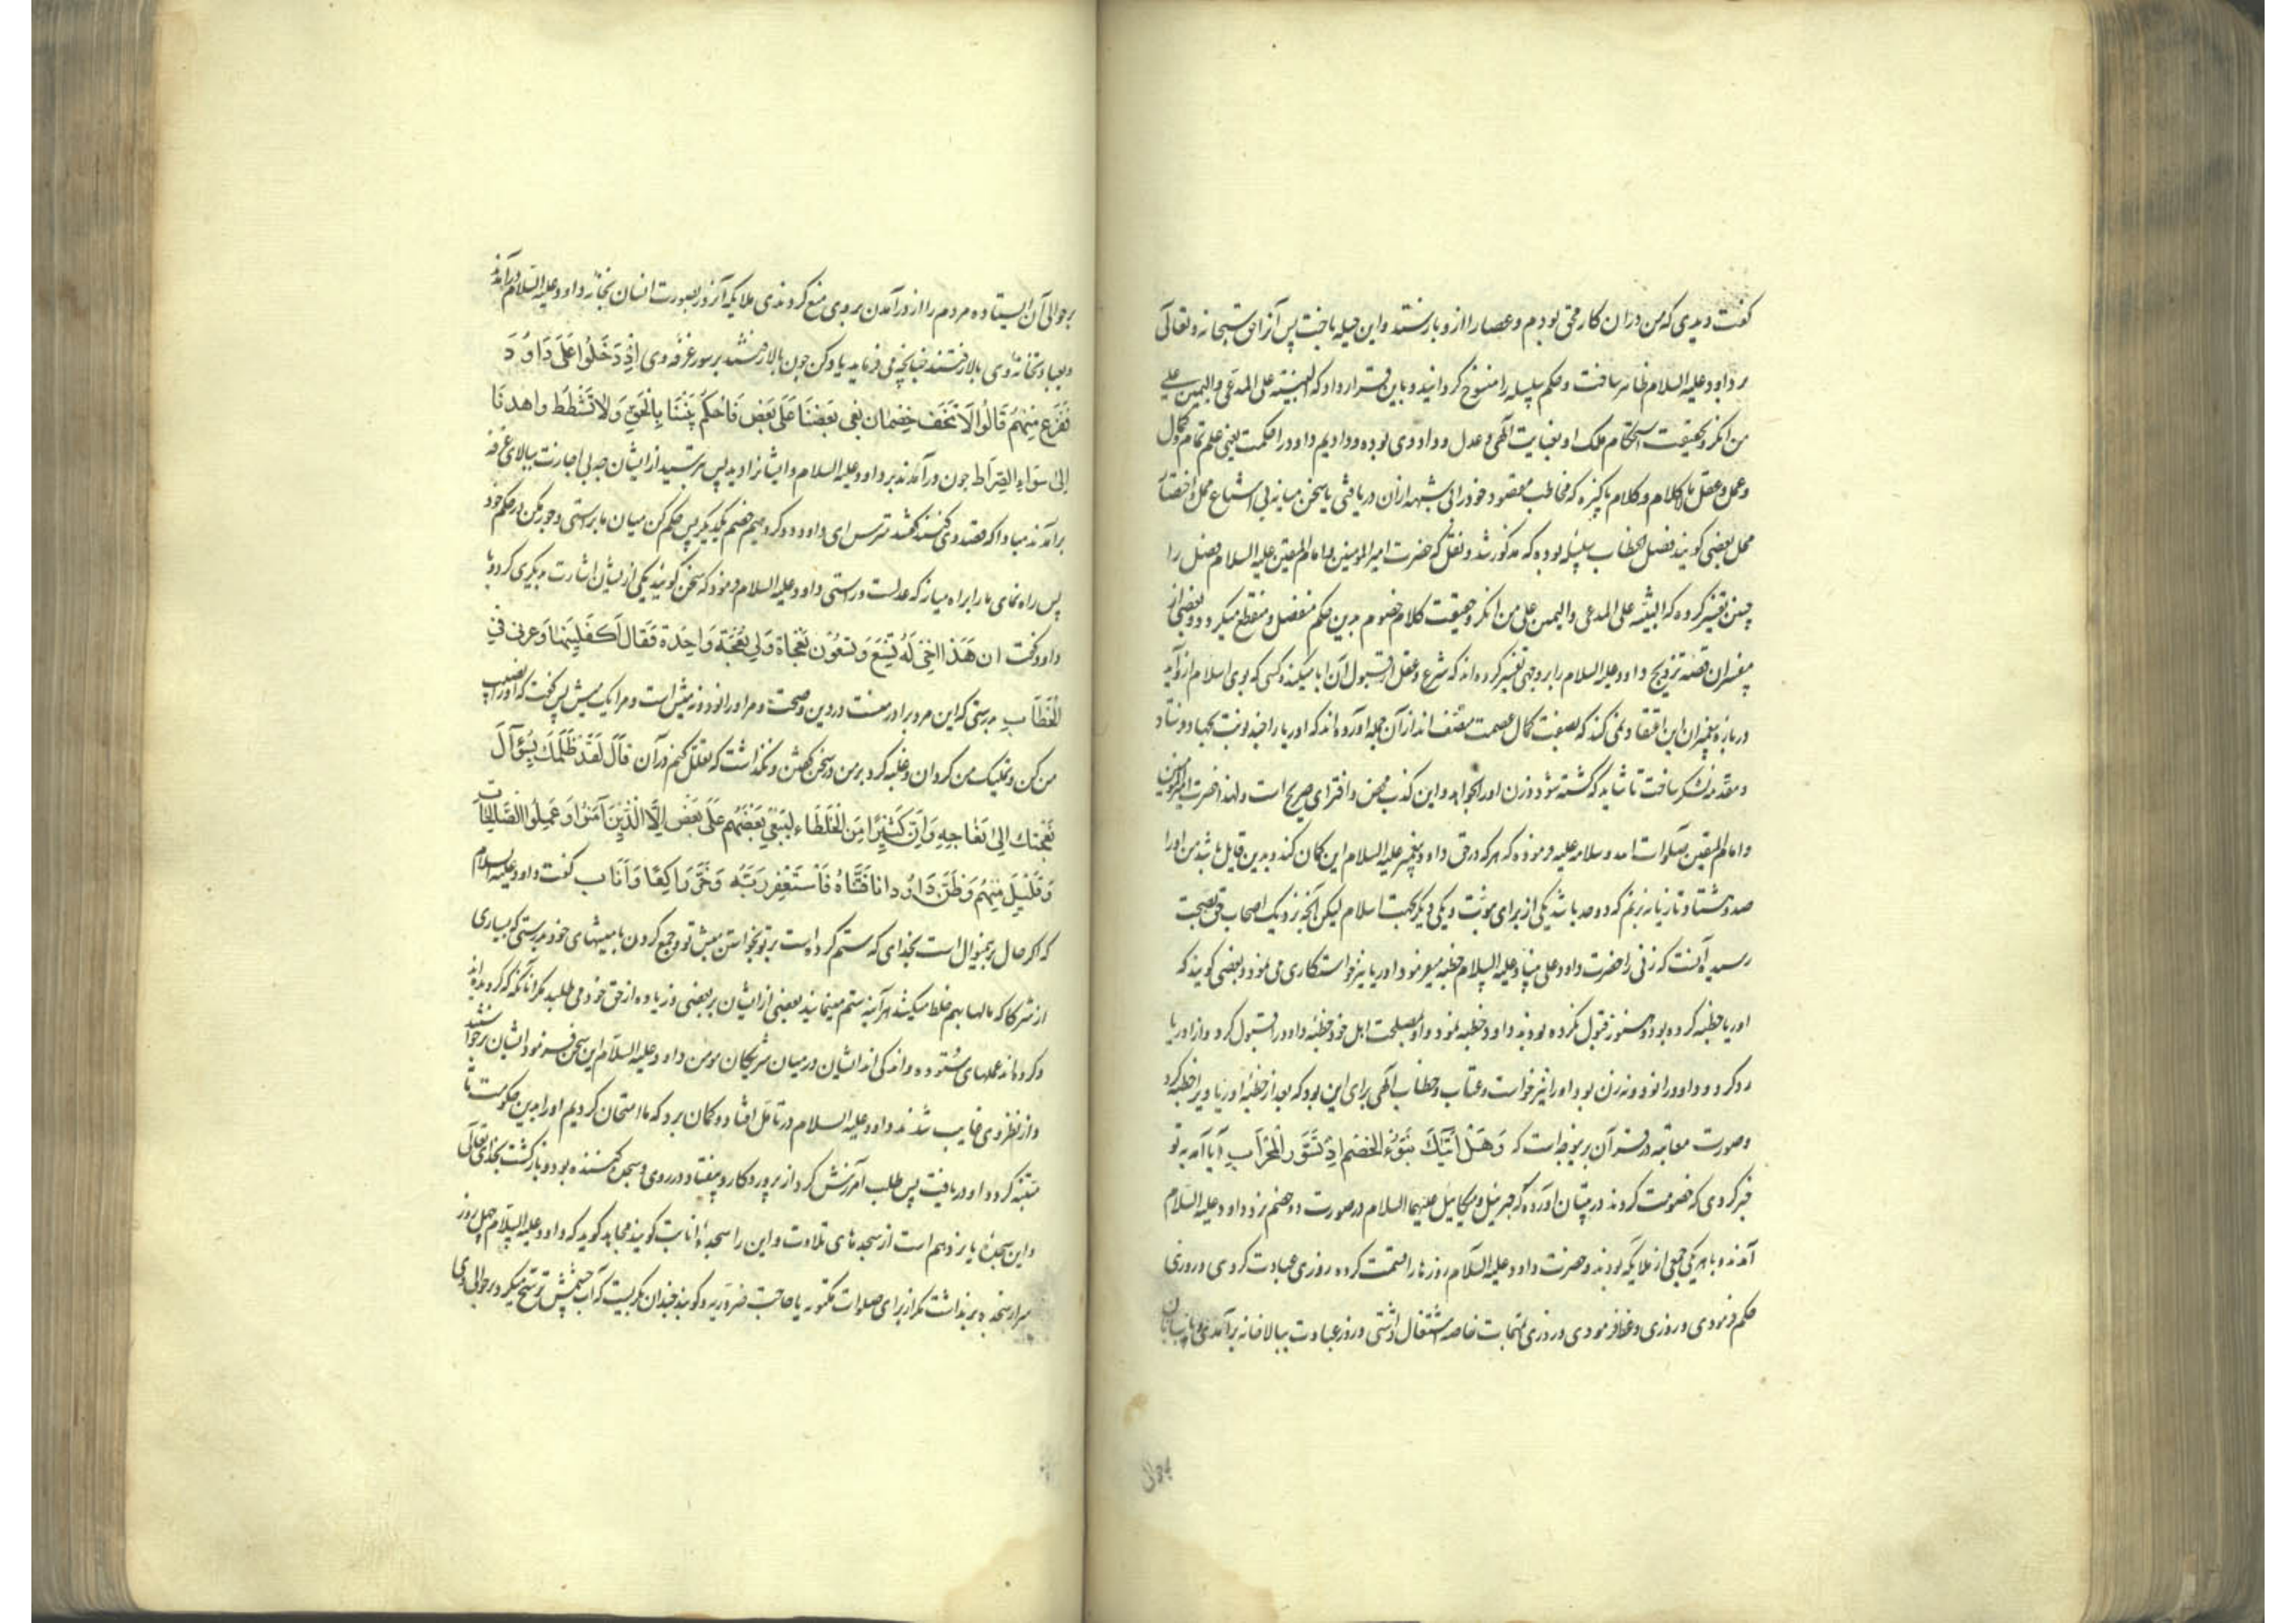 گفت دیدی که من دران کار محق بودم و عصا را ازو باز ستد و این حیله باخت پس آنرا حق سبحانه و تعالی
بر داود علیه السلام ظاهر ساخت و حکم سلسله را منسوخ گردانید و باین قرار داد که البینة علی المدعی و الیمین علی
من انکر و بحقیقت استحکام ملک او بغایت الهی و عدل و داودی بوده و دادیم داود را حکمت یعنی علم تمام و کمال
و عمل و عقل با کلام و کلام پاکیزه که مخاطب مقصود خود را بی شبهه ازان دریافتی یا سخن میانه بی اشباع ممل و اختصار
مخل بعضی کویند فصل الخطاب سلسله بوده که مذکور شد و نقل که حضرت امیر المومنین و امام المتقین علیه السلام فصل را
چنین تفسیر کرده که البینه علی المدعی و الیمین علی من انکر و حقیقت کلام خصوم بدین حکم منفصل و منقطع میکردد و بعضی از
مفسران قصه تزویج داود علیه السلام را بر وجهی تفسیر کرده اند که شرع و عقل از قبول آن ابا میکند و کسی که بوی اسلام ازو آید
درباره پیغمبران این اعتقاد نمی کند که بصفت کمال عصمت متصف اند از آن جمله آورده اند که اوریا را چند نوبت بجهاد فرستاد
و مقدمه لشکر ساخت تا شاید که کشته شود و زن او را بخواهد و این کذب محض و افترای صریح است و لهذا حضرت امیر المومنین
و امام المتقین صلوات الله و سلامه علیه فرموده که هر که در حق داود پیغمبر علیه السلام این کمان کند و بدین قایل باشد من او را
صد و شصت تازیانه بزنم که دو حد باشد یکی از برای نبوت و یکی دیگر بجهت اسلام لیکن آنچه نزدیک اصحاب حق بصحت
رسیده آنست که زنی را حضرت داود علی نبینا و علیه السلام خطبه میفرمود و اوریا نیز خواستکاری می نمود و بعضی کویند که
اوریا خطبه کرده بود و هنوز قبول نکرده بودند داود خطبه نمود و او بمصلحت اهل خود خطبه داود را قبول کرد و از اوریا
رد کرد و داود را نود و نه زن بود او را نیز خواست و عتاب و خطاب الهی برای این بود که بعد از خطبه اوریا ویرا خطبه کرد
و صورت معاتبه در قرآن برینوجه است که وَهَلْ أَتَاكَ نَبَؤُا الْخَصْمِ اِذْ تَسَوَّرُوا الْمِحْرَابَ آیا آمد به تو
خبر کروهی که خصومت کردند در تبیان آورده که جبرئیل و میکاییل علیهما السلام در صورت دو خصم نزد داود علیه السلام
آمدند و با هر یکی جمعی از ملایکه بودند و حضرت داود علیه السلام روزها را قسمت کرده روزی عبادت کردی و روزی
حکم فرمودی و روزی وعظ فرمودی و روزی بمهمات خاصه اشتغال داشتی و روز عبادت ببالاخانه برآمدی و پاسبانان
بر حوالی آن ایستاده مردم را از در آمدن بر وی منع کردندی ملایکه آنروز بصورت انسان بخانه داود علیه السلام درآمدند
و بعبادتخانه وی بالا رفتند چنانچه می فرماید یاد کن چون بالا رفتند بر سور غرفه وی اِذْ دَخَلُوا عَلَى دَاوُدَ
فَفَزِعَ مِنْهُمْ قَالُوا لَا تَخَفْ خَصْمَانِ بَغَى بَعْضُنَا عَلَى بَعْضٍ فَاحْكُمْ بَيْنَنَا بِالْحَقِّ وَلَا تُشْطِطْ وَاهْدِنَا
إِلَى سَوَاءِ الصِّرَاطِ چون درآمدند بر داود علیه السلام و ایشانرا دید پس بترسید از ایشان چه بی اجازت ببالای غرفه
برآمدند مبادا که قصد وی کنند گفتند مترس ای داود دو کروهیم خصم یکدیگر پس حکم کن میان ما براستی و جور مکن در حکم خود
پس راه نمای ما را براه میانه که عدلست و راستی داود علیه السلام فرمود که سخن کویید یکی از ایشان اشارت بدیگری کرد و با
داود کفت اِنَّ هَذَا اَخِي لَهُ تِسْعٌ وَتِسْعُونَ نَعْجَةً وَلِيَ نَعْجَةٌ وَاحِدَةٌ فَقَالَ أَكْفِلْنِيهَا وَعَزَّنِي فِي
الْخِطَابِ بدرستی که این مرد برادر منست در دین و صحبت و مر او را نود و نه میش است و مرا یک میش پس گفت که او را نصیب
من کن و بملک من کردان و غلبه کرد بر من در سخن کفتن و نکذاشت که تعلل کنم در آن قَالَ لَقَدْ ظَلَمَكَ بِسُؤَالِ
نَعْجَتِكَ اِلَى نِعَاجِهِ وَاِنَّ كَثِيرًا مِنَ الْخُلَطَاءِ لَيَبْغِي بَعْضُهُمْ عَلَى بَعْضٍ اِلَّا الَّذِينَ آمَنُوا وَعَمِلُوا الصَّالِحَاتِ
وَقَلِيلٌ مِنْهُمْ وَظَنَّ دَاوُدُ اَنَّمَا فَتَنَّاهُ فَاسْتَغْفَرَ رَبَّهُ وَخَرَّ رَاكِعًا وَاَنَابَ گفت داود علیه السلام
که اگر حال برینمنوال است بخدای که ستم کرده است بر تو بخواستن میش تو و جمع کردن با میشهای خود و بدرستی که بسیاری
از شرکا که مالها بهم خلط میکنند هرآینه ستم مینمایند بعضی از ایشان بر بعضی و زیاده از حق خود می طلبند مکر آنانکه که کرویده اند
و کرده اند عملهای ستوده و اندکی اند ایشان در میان شریکان مومن داود علیه السلام این سخن فرمود ایشان برخاستند
و از نظر وی غایب شدند داود علیه السلام در تامل افتاد و کمان برد که ما امتحان کردیم او را بدین حکومت تا
متنبه کردد او دریافت پس طلب آمرزش کرد از پروردکار و بیفتاد در روی و سجده کننده بود و بازکشت بخدای تعالی
و این سجده یازدهم است از سجدهای تلاوت و این را سجده انابت کویند مجاهد کوید که داود علیه السلام چهل روز
سر از سجده برنداشت مکر از برای صلوات مکتوبه یا حاجت ضروریه و کویند چندان بکریست که آب چشمش ترشح میکرد بر حوالی وی